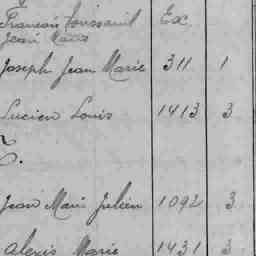 François Toussaint Ex.
Jean Marie
Joseph Jean Marie 311 1
Lucien Louis 1413 3
Jean Marie Julien 1092 3
Alexis Marie 1431 3